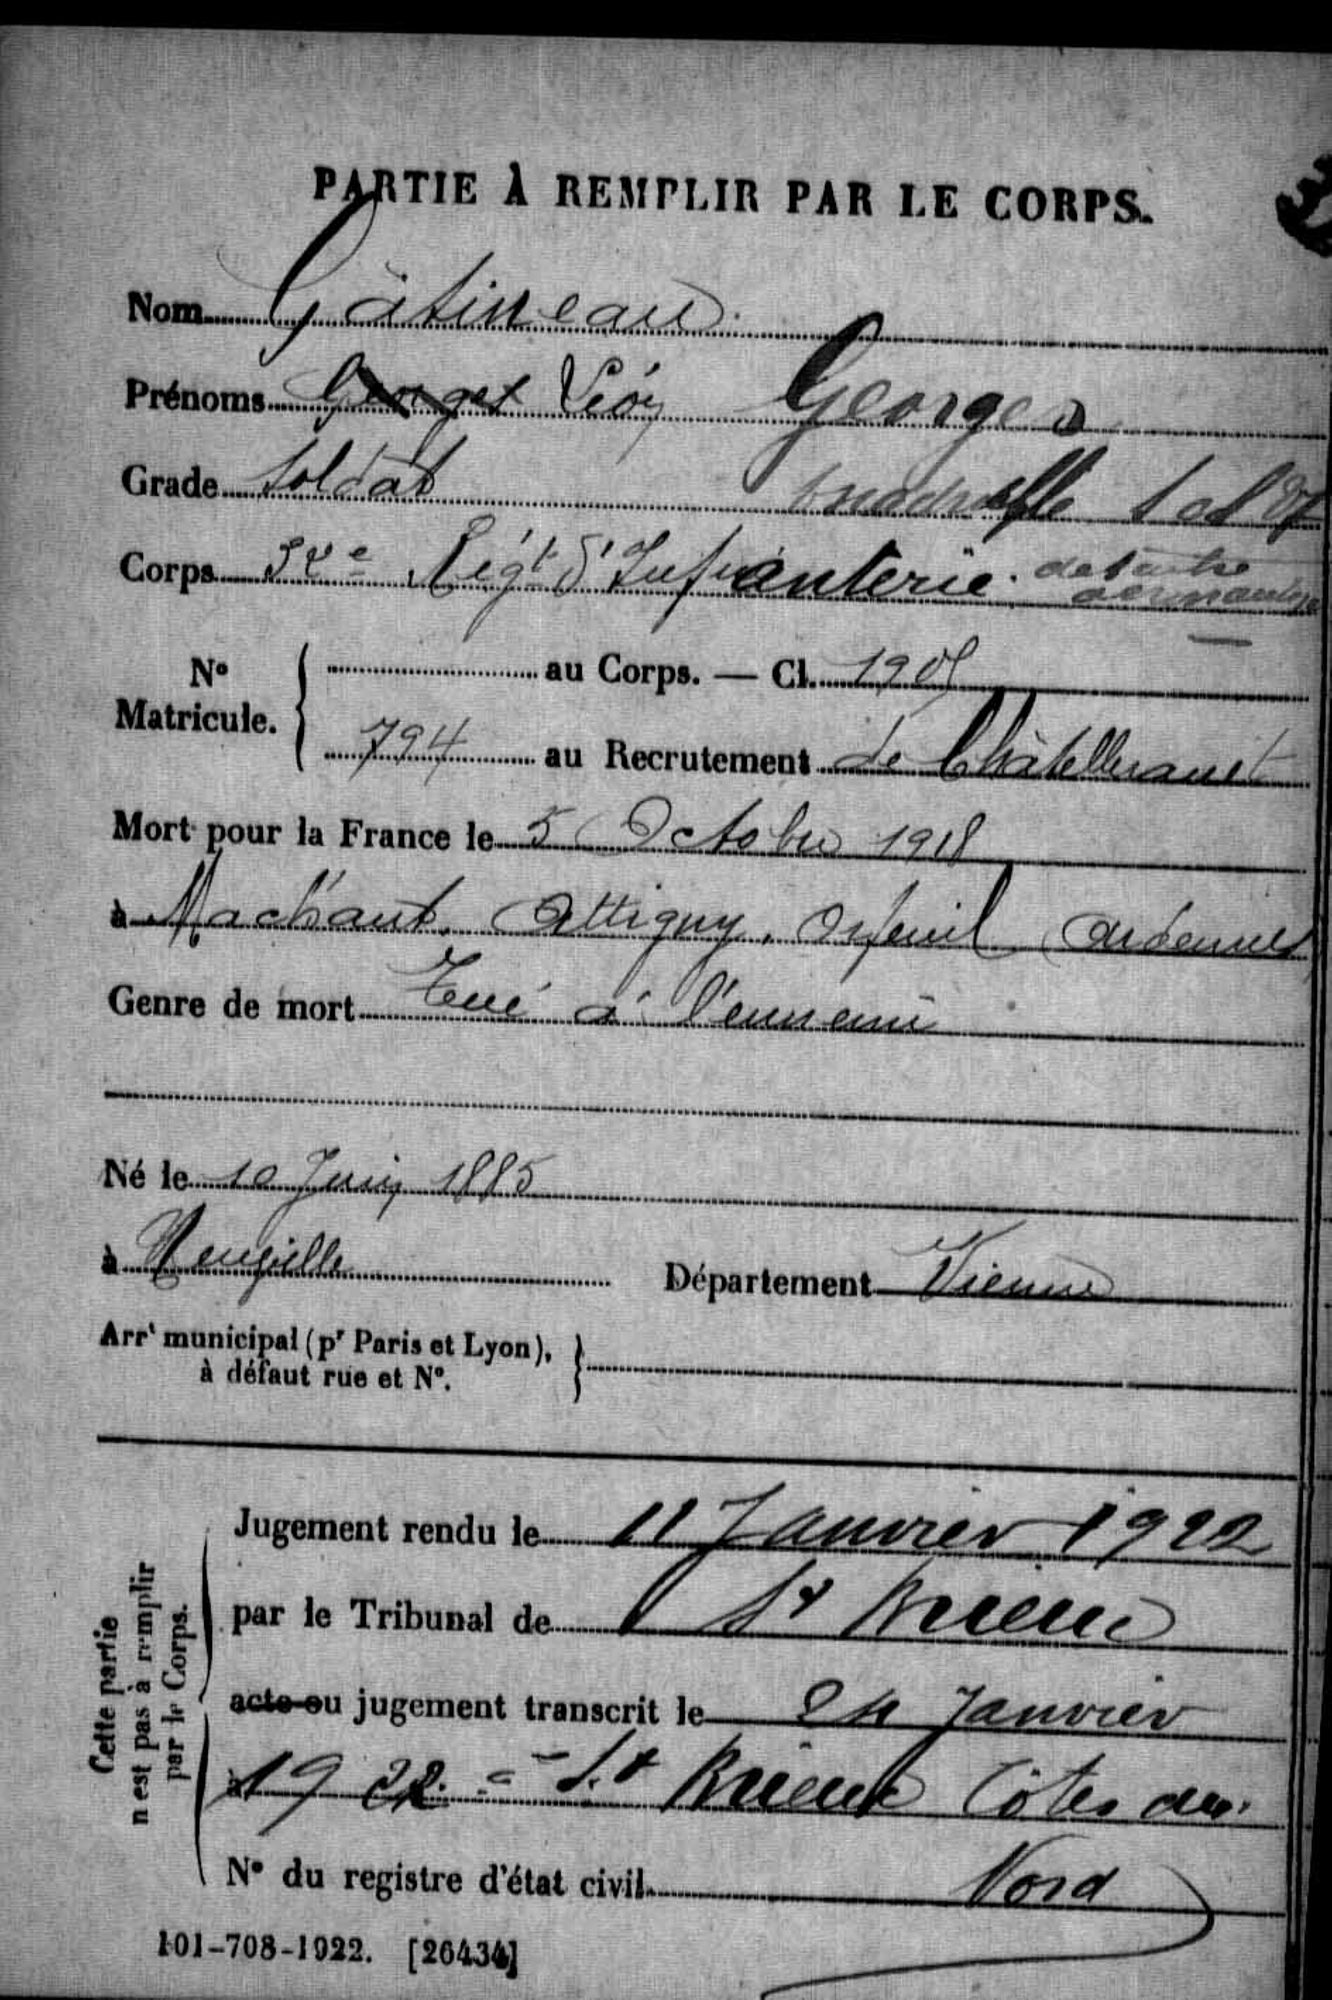 PARTIE À REMPLIR PAR LE CORPS.
Nom Gâtineau
Prénoms Georges Léon Georges
Grade Soldat
Corps Régt d'Infanterie.
N° Matricule. au Corps. — Cl. 1905
794 au Recrutement de Châtellerault
Mort pour la France le 5 Octobre 1918
à Machault. Attigny. Orfeuil Ardennes
Genre de mort Tué à l'ennemi
Né le 10 Juin 1885
à Neuville Département Vienne
Arrt municipal (pr Paris et Lyon),
à défaut rue et N°.
Cette partie
n'est pas à remplir
par le Corps.
Jugement rendu le 11 Janvier 1922
par le Tribunal de St Brieuc
acte ou jugement transcrit le 24 Janvier
à 1922 = St Brieuc Côtes du
N° du registre d'état civil Nord
101-708-1922. [26434]